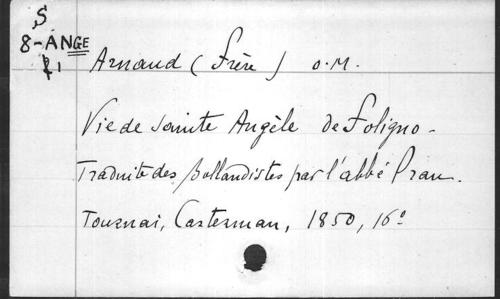 S
8-ANGE
1
Arnaud (Frère) O.M.
Vie de Sainte Angèle de Foligno-
Traduite des Bollandistes par l'abbé Prau.
Tournai, Casterman, 1850, 16º